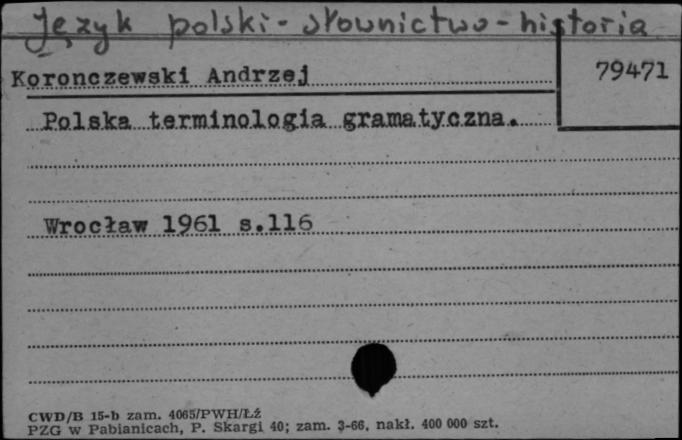 Język polski - słownictwo - historia
Koronczewski Andrzej
79471
Polska terminologia gramatyczna.
Wrocław 1961 s.116
CWD/B 15-b zam. 4065/PWH/Łź
PZG w Pabianicach, P. Skargi 40; zam. 3-66. nakł. 400 000 szt.